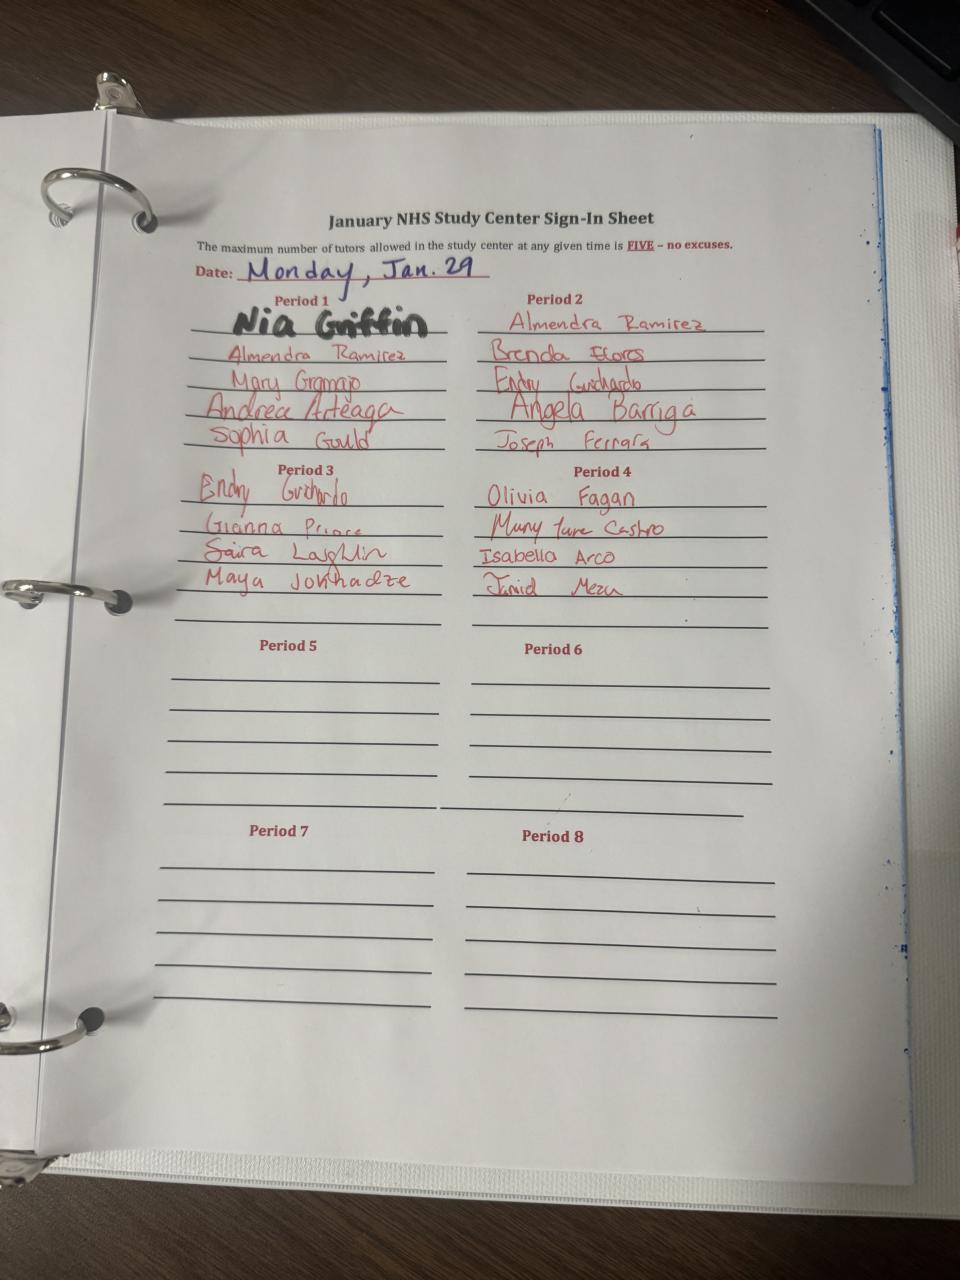 January NHS Study Center Sign-In Sheet
The maximum number of tutors allowed in the study center at any given time is FIVE – no excuses.
Date: Monday, Jan. 29
Period 1
Nia Griffin
Almendra Ramirez
Mary Gramajo
Andrea Arteaga
Sophia Gould
Period 2
Almendra Ramirez
Brenda Flores
Endry Guichardo
Angela Barriga
Joseph Ferrara
Period 3
Endry Guichardo
Gianna Prince
Saira Laghlin
Maya Jokhadze
Period 4
Olivia Fagan
Castro
Isabella Arco
Period 5
Period 6
Period 7
Period 8